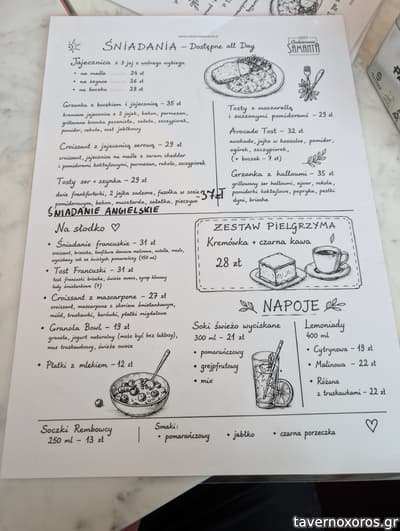 ŚNIADANIA – Dostępne all Day
Cukiernia
SAMANTA
Jajecznica z 3 jaj z wolnego wybiegu
• na maśle 24 zł
• na szynce 26 zł
• na boczku 28 zł
Grzanka z boczkiem i jajecznicą – 35 zł
kremowa jajecznica z 2 jajek, bekon, parmezan,
pomidor, rukola, szczypiorek
Croissant z jajecznicą serową – 29 zł
croissant, jajecznica na maśle z serem cheddar
z pomidorami koktajlowymi, parmezan, rukola, szczypiorek
Tosty ser + szynka – 29 zł
dwie frankfurterki, 2 jajka sadzone, fasolka w sosie
pomidorowym, bekon, musztarda, sałatka, pieczywo
37zł
ŚNIADANIE ANGIELSKIE
Tosty z mozzarellą
i suszonymi pomidorami – 29 zł
Avocado Tost – 32 zł
awokado, jajko w koszulce, pomidor,
ogórek, szczypiorek,
(+ boczek – 7 zł)
Grzanka z halloumi – 35 zł
grillowany ser halloumi, ajwar, rukola,
pomidorki koktajlowe, papryka, pestki
dyni, brioche
Na słodko
• Śniadanie francuskie – 31 zł
• Tost Francuski – 31 zł
tost francuski brioche, świeże owoce, syrop klonowy
• Croissant z mascarpone – 27 zł
croissant, mascarpone z skorkem śmietankowym,
miód, truskawki, borówki, płatki migdałów
• Granola Bowl – 19 zł
granola, jogurt naturalny (może być bez laktozy),
mus truskawkowy, świeże owoce
• Płatki z mlekiem – 12 zł
ZESTAW PIELGRZYMA
Kremówka + czarna kawa
28 zł
NAPOJE
Soki świeżo wyciskane
300 ml – 21 zł
• pomarańczowy
• grejpfrutowy
• mix
Lemoniady
400 ml
• Cytrynowa – 19 zł
• Malinowa – 22 zł
• Różana
z truskawkami – 22 zł
Soczki Rembowcy
250 ml – 13 zł
Smaki:
• pomarańczowy • jabłko • czarna porzeczka
tavernoxoros.gr